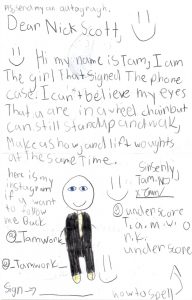 Ps, send my an autograph,
Dear Nick Scott,
Hi my name is Tam, I am
The girl that signed The phone
case. I can't believe my eyes
That u are in a wheel chair but
can still stand up and walk,
Make a show, and lift wights
at The same Time.
here is my
instagram
if u want
to follow
me Back
@_Tamwork_
@_Tamwork_
Sign→
Sinserily,
Tam
underscore
t.a.m.w.o
r.k.
underscope
how to spell